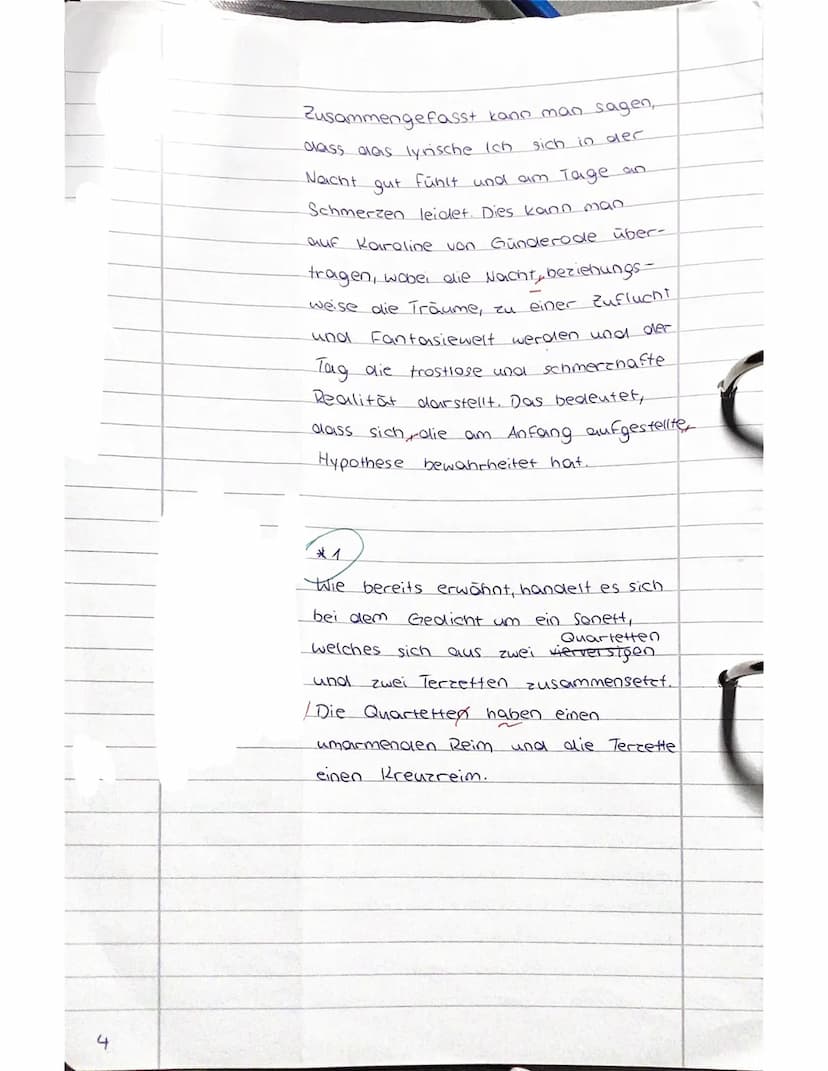 Zusammengefasst kann man sagen,
dass das lyrische Ich sich in der
Nacht gut fühlt und am Tage an
Schmerzen leidet. Dies kann man
auf Karoline von Günderode über-
tragen, wobei die Nacht, beziehungs-
weise die Träume, zu einer Zuflucht
und Fantasiewelt werden und der
Tag die trostlose und schmerzhafte
Realität darstellt. Das bedeutet,
dass sich, die am Anfang aufgestellte,
Hypothese bewahrheitet hat.
*1
Wie bereits erwähnt, handelt es sich
bei dem Gedicht um ein Sonett,
welches sich aus zwei vierversigen Quartetten
und zwei Terzetten zusammensetzt.
Die Quartetten haben einen
umarmenden Reim und die Terzette
einen Kreuzreim.
4